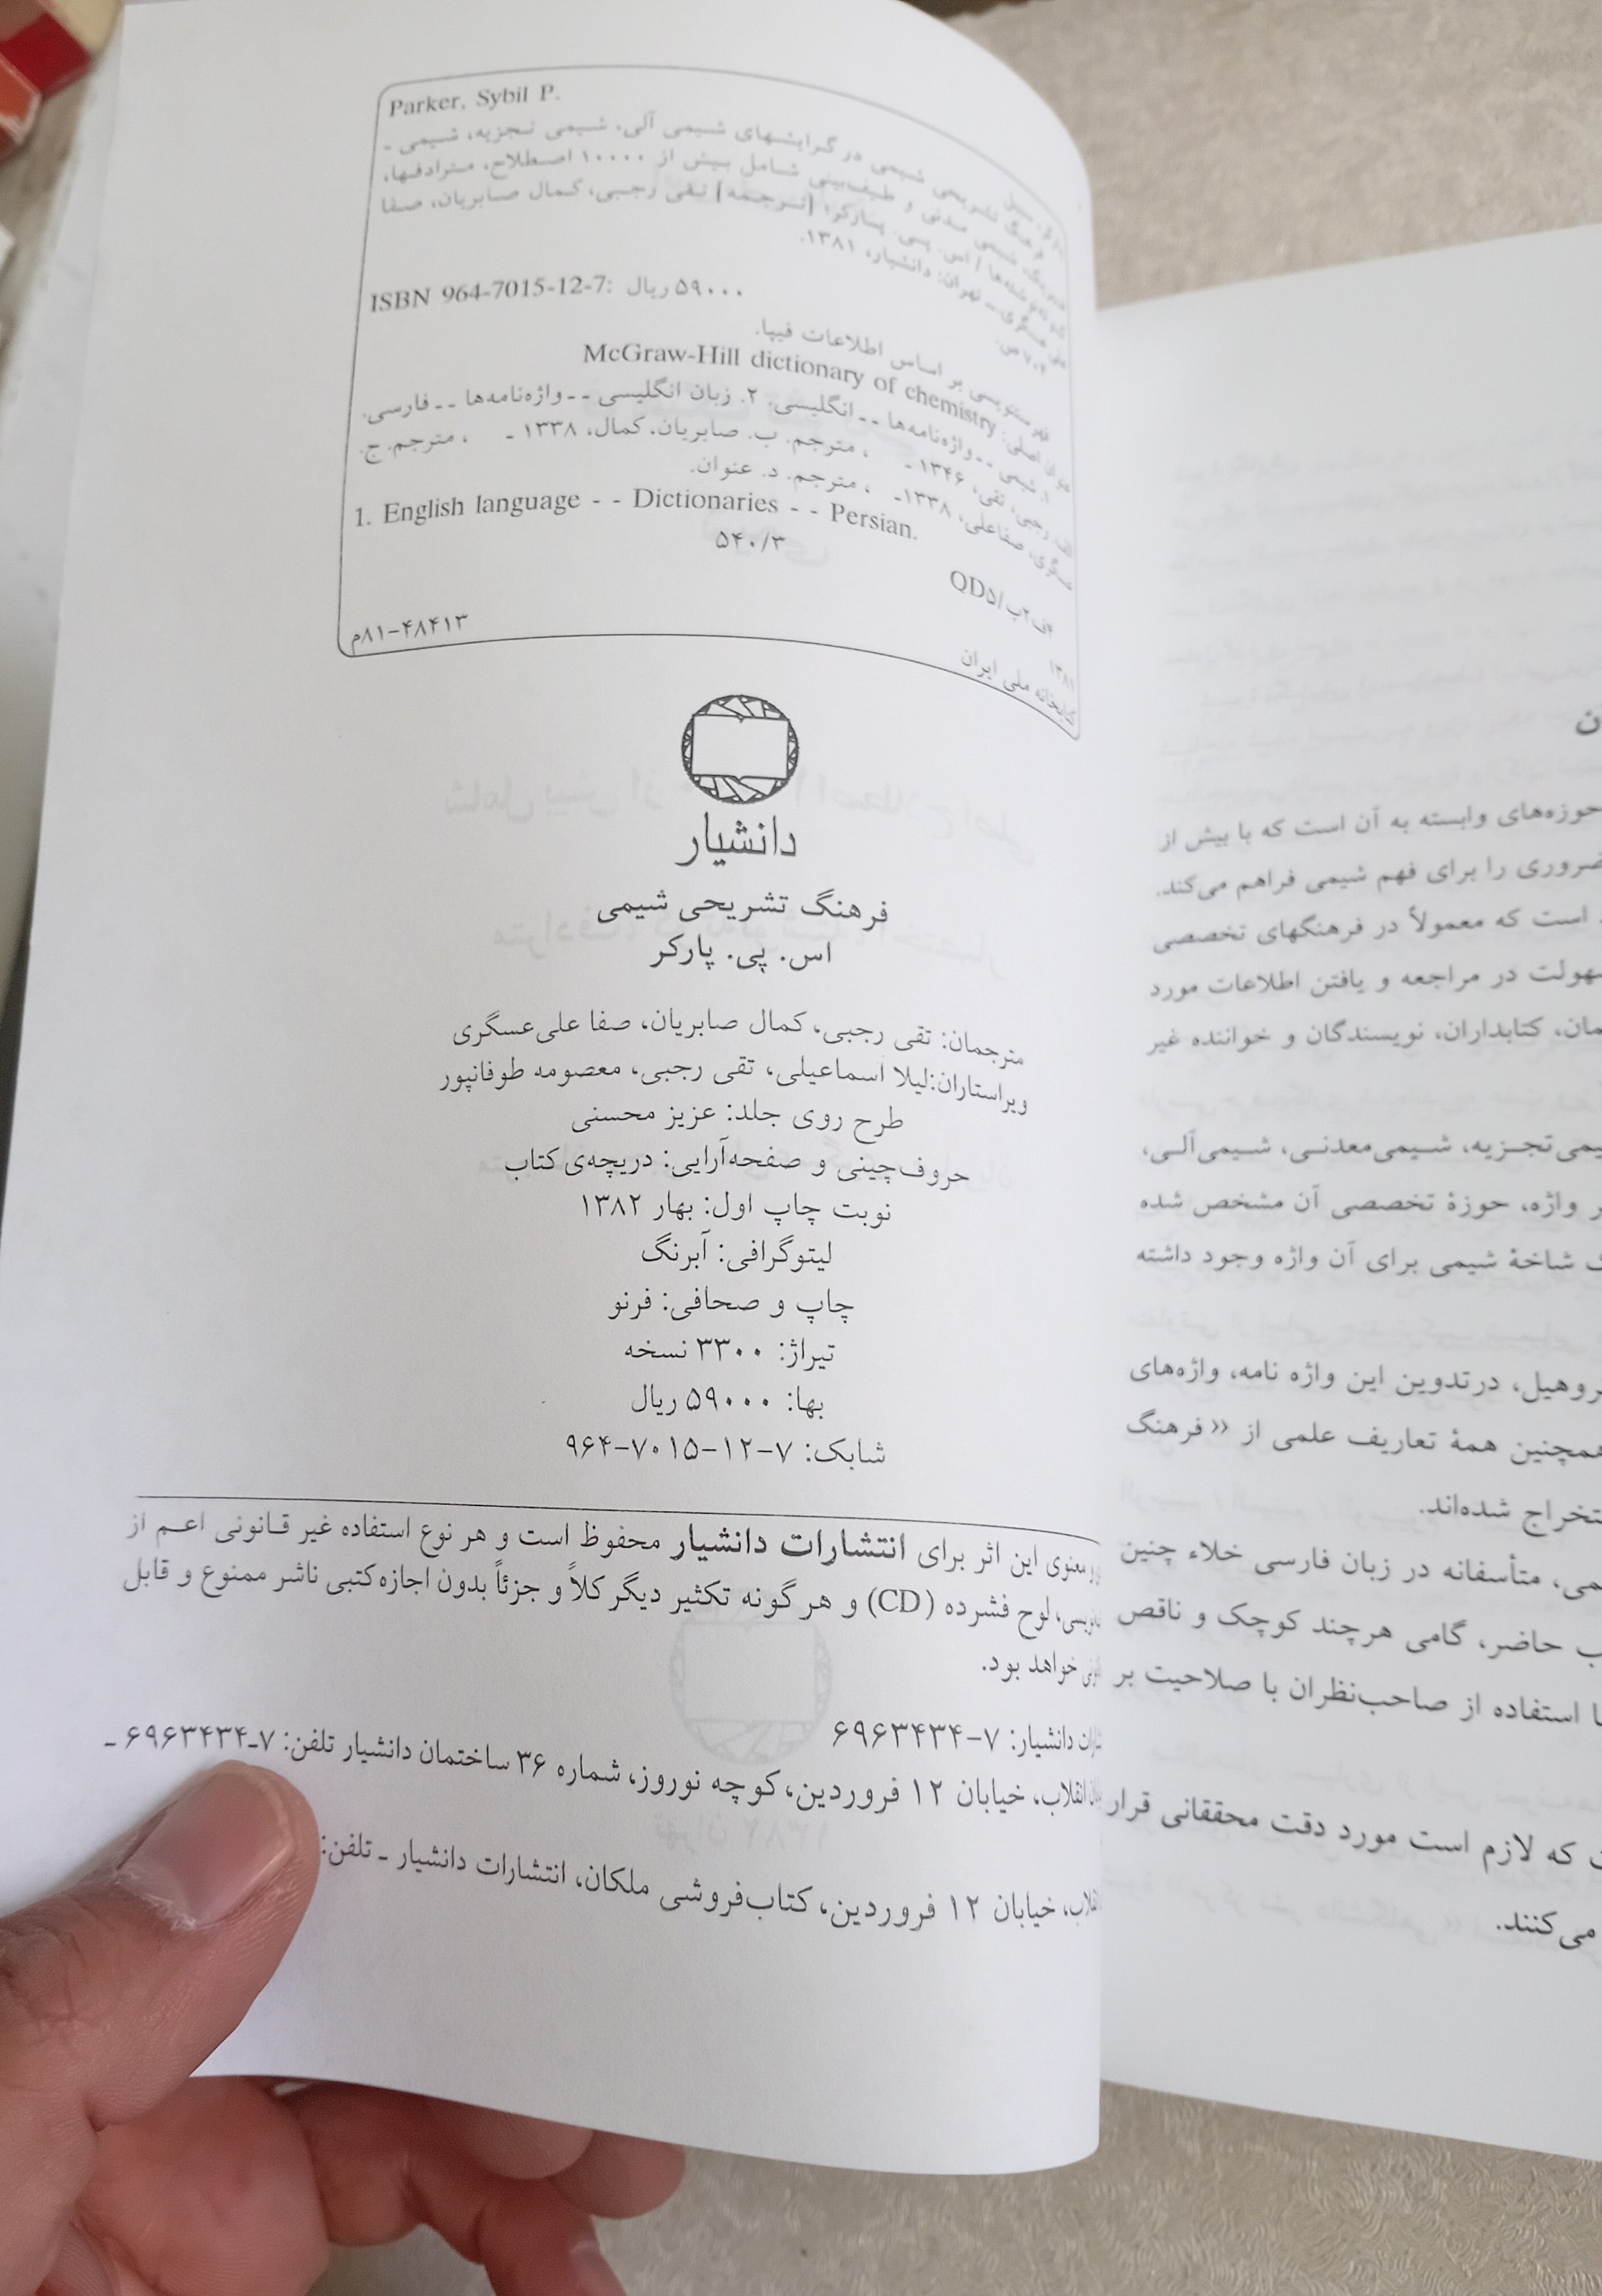 Parker, Sybil P.
فرهنگ تشریحی شیمی در گرایشهای شیمی آلی، شیمی تجزیه، شیمی ـ
شیمی معدنی و طیف‌بینی شامل بیش از ۱۰۰۰۰ اصطلاح، مترادفها،
/ اس. پی. پارکر؛ [ترجمه] تقی رجبی، کمال صابریان، صفا
عسگری. ــ تهران: دانشیار، ۱۳۸۱.
۷۰۴ ص.
ISBN 964-7015-12-7: ۵۹۰۰۰ ریال
فهرستنویسی بر اساس اطلاعات فیپا.
عنوان اصلی: McGraw-Hill dictionary of chemistry
۱. شیمی ـ ـ واژه‌نامه‌ها ـ ـ انگلیسی. ۲. زبان انگلیسی ـ ـ واژه‌نامه‌ها ـ ـ فارسی.
الف. رجبی، تقی، ۱۳۴۶ ـ ، مترجم. ب. صابریان، کمال، ۱۳۳۸ ـ ، مترجم. ج.
عسگری، صفاعلی، ۱۳۳۸ـ ، مترجم. د. عنوان.
1. English language - - Dictionaries - - Persian.
۵۴۰/۳
QD۵/پ۲ف۴
۱۳۸۱
کتابخانه ملی ایران
۸۱-۴۸۴۱۳م
دانشیار
فرهنگ تشریحی شیمی
اس. پی. پارکر
مترجمان: تقی رجبی، کمال صابریان، صفا علی‌عسگری
ویراستاران: لیلا اسماعیلی، تقی رجبی، معصومه طوفانپور
طرح روی جلد: عزیز محسنی
حروف‌چینی و صفحه‌آرایی: دریچه‌ی کتاب
نوبت چاپ اول: بهار ۱۳۸۲
لیتوگرافی: آبرنگ
چاپ و صحافی: فرنو
تیراژ: ۳۳۰۰ نسخه
بها: ۵۹۰۰۰ ریال
شابک: ۷-۱۲-۷۰۱۵-۹۶۴
و معنوی این اثر برای انتشارات دانشیار محفوظ است و هر نوع استفاده غیر قانونی اعم از
لوح فشرده (CD) و هر گونه تکثیر دیگر کلاً و جزئاً بدون اجازه‌کتبی ناشر ممنوع و قابل
خواهد بود.
دانشیار: ۷-۶۹۶۳۴۳۴
انقلاب، خیابان ۱۲ فروردین، کوچه نوروز، شماره ۳۶ ساختمان دانشیار تلفن: ۷ـ۶۹۶۳۴۳۴ ـ
خیابان ۱۲ فروردین، کتاب‌فروشی ملکان، انتشارات دانشیار ـ تلفن:
حوزه‌های وابسته به آن است که با بیش از
ضروری را برای فهم شیمی فراهم می‌کند.
است که معمولاً در فرهنگهای تخصصی
سهولت در مراجعه و یافتن اطلاعات مورد
کتابداران، نویسندگان و خواننده غیر
شیمی تجزیه، شیمی‌معدنی، شیمی‌آلی،
واژه، حوزهٔ تخصصی آن مشخص شده
شاخهٔ شیمی برای آن واژه وجود داشته
درتدوین این واژه نامه، واژه‌های
همچنین همهٔ تعاریف علمی از «فرهنگ
شده‌اند.
متأسفانه در زبان فارسی خلاء چنین
حاضر، گامی هرچند کوچک و ناقص
استفاده از صاحب‌نظران با صلاحیت بر
که لازم است مورد دقت محققانی قرار
می‌کنند.